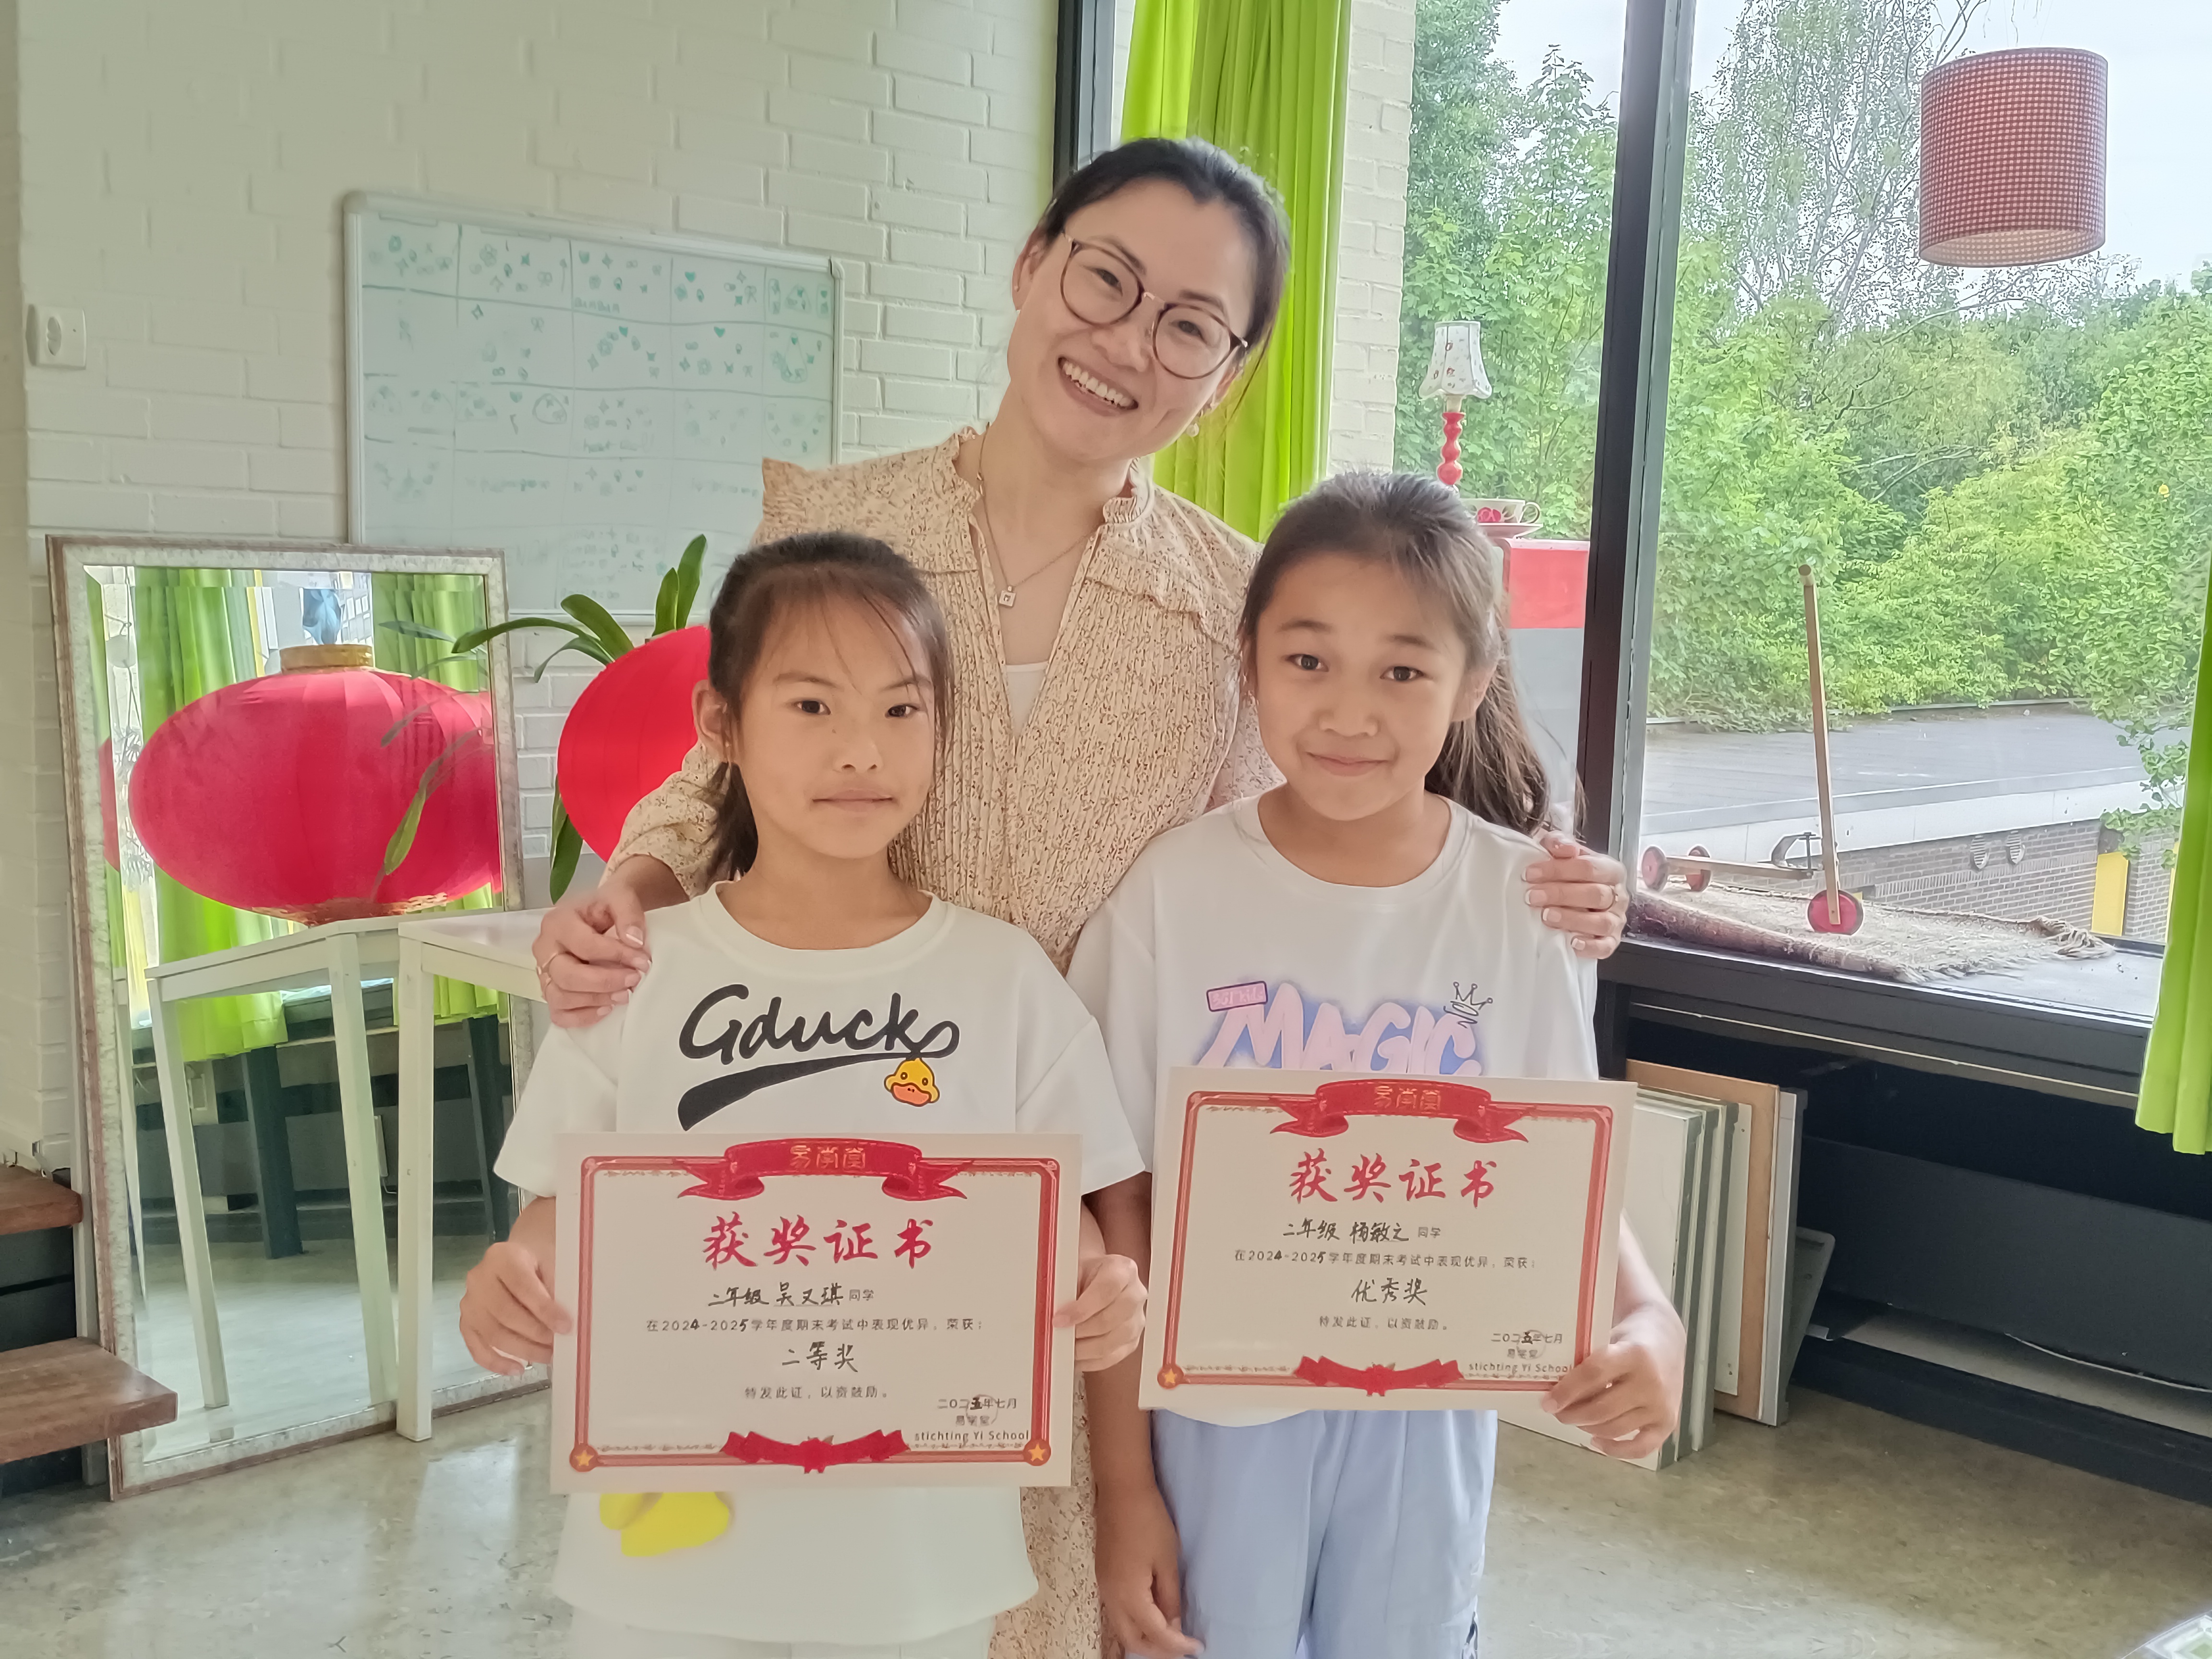 Gduck
MAGIC
易学堂
获奖证书
二年级 吴又琪 同学
在2024-2025学年度期末考试中表现优异，荣获：
二等奖
特发此证，以资鼓励。
二〇二五年七月
易学堂
stichting Yi School
易学堂
获奖证书
二年级 杨敏之 同学
在2024-2025学年度期末考试中表现优异，荣获：
优秀奖
特发此证，以资鼓励。
二〇二五年七月
易学堂
stichting Yi School